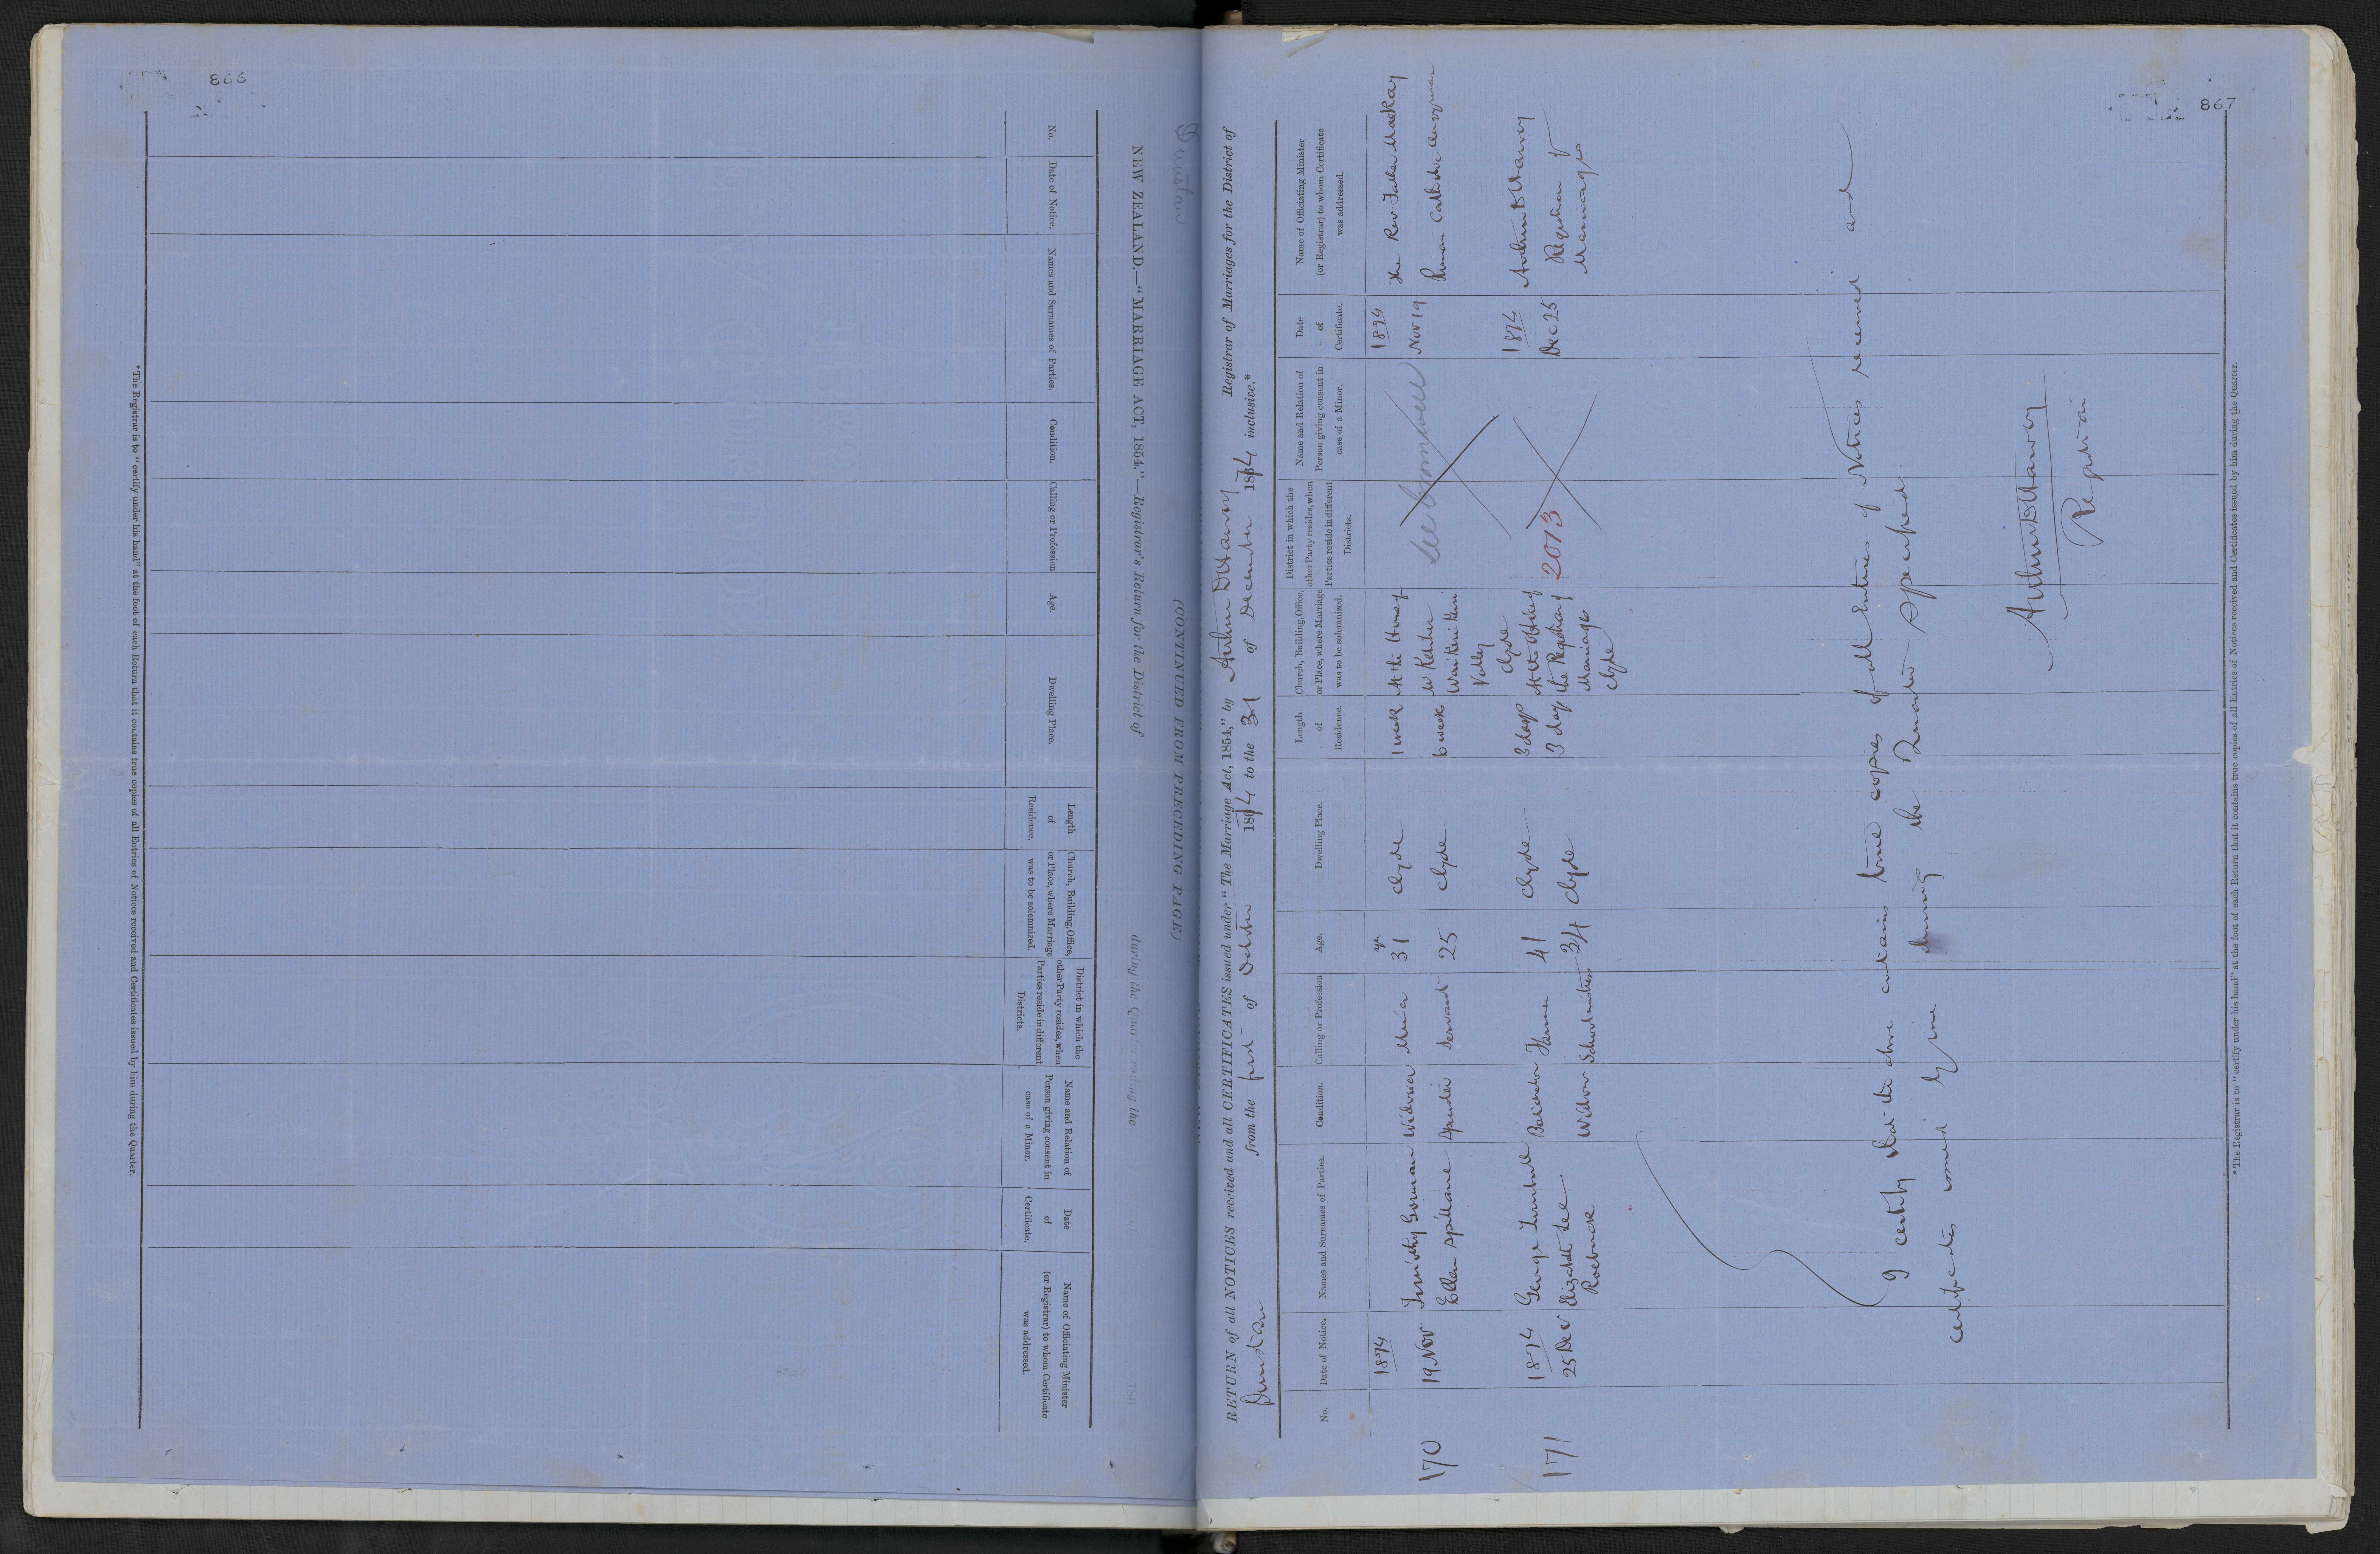 866
Dunstan
NEW ZEALAND.—"MARRIAGE ACT, 1854."—Registrar's Return for the District of during the Quarter ending the
(CONTINUED FROM PRECEDING PAGE)
No.
Date of Notice.
Names and Surnames of Parties.
Condition.
Calling or Profession
Age.
Dwelling Place.
Length
of
Residence.
Church, Building, Office,
or Place, where Marriage
was to be solemnized.
District in which the
other Party resides, when
Parties reside in different
Districts.
Name and Relation of
Person giving consent in
case of a Minor.
Date
of
Certificate.
Name of Officiating Minister
(or Registrar) to whom Certificate
was addressed.
*The Registrar is to "certify under his hand" at the foot of each Return that it contains true copies of all Entries of Notices received and Certificates issued by him during the Quarter.
867
RETURN of all NOTICES received and all CERTIFICATES issued under "The Marriage Act, 1854," by Arthur D Harvey Registrar of Marriages for the District of
Dunstan from the first of October 1874 to the 31 of December 1874 inclusive.*
No.
Date of Notice.
Names and Surnames of Parties.
Condition.
Calling or Profession
Age.
Dwelling Place.
Length
of
Residence.
Church, Building, Office,
or Place, where Marriage
was to be solemnized.
District in which the
other Party resides, when
Parties reside in different
Districts.
Name and Relation of
Person giving consent in
case of a Minor.
Date
of
Certificate.
Name of Officiating Minister
(or Registrar) to whom Certificate
was addressed.
170
1874
19 Nov
Timothy Gorman
Ellen Spillane
Widower
Spinster
Miner
Servant
yrs
31
25
Clyde
Clyde
1 week
6 weeks
At the House of
W. Kelliher
Waikerikeri
Valley
Clyde
see Cromwell
1874
Nov 19
The Rev Father Mackay
Roman Catholic Clergyman
171
1874
25 Dec
George Turnbull
Elizabeth Lee
Roebuck
Bachelor
Widow
Farmer
Schoolmistress
41
34
Clyde
Clyde
3 days
3 days
At the Office of
the Registrar of
Marriages
Clyde
2013
1874
Dec 25
Arthur D Harvey
Registrar of
Marriages
I certify that the above contains true copies of all Entries of Notices received and
Certificates issued by me during the Quarter specified
Arthur D Harvey
Registrar
*The Registrar is to "certify under his hand" at the foot of each Return that it contains true copies of all Entries of Notices received and Certificates issued by him during the Quarter.